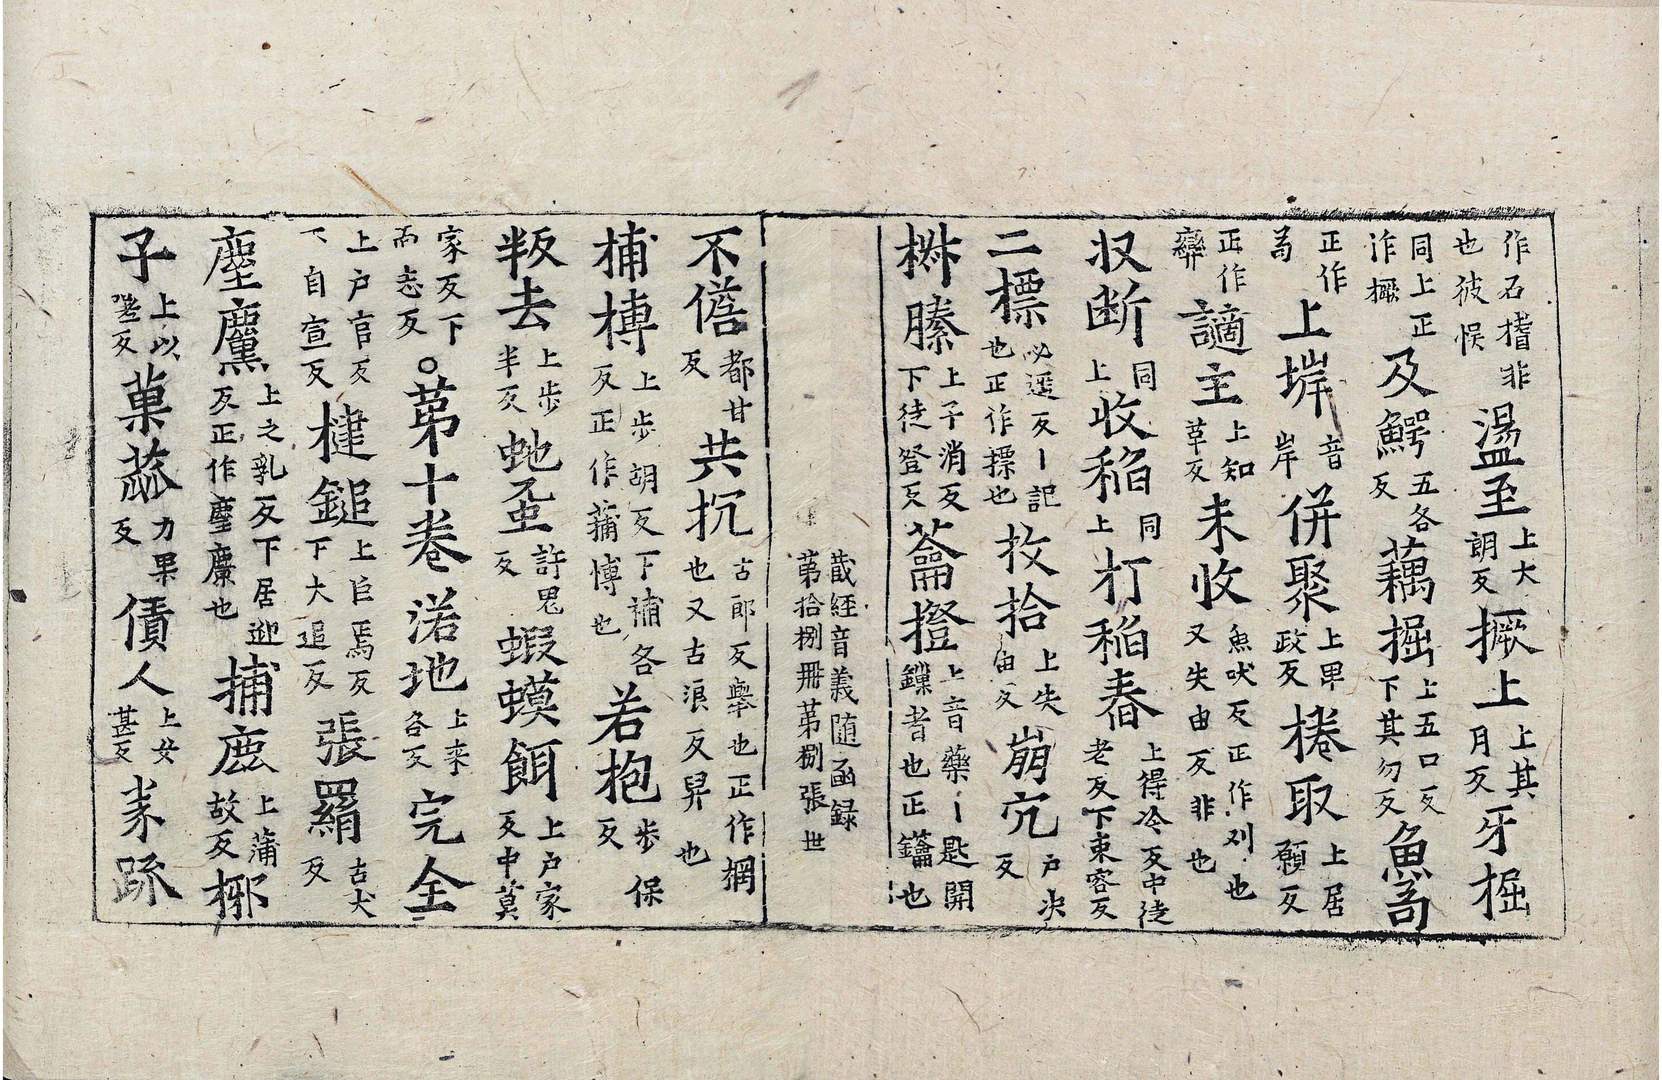 作石稽非也彼悮盪至上大朗反撅上上其月反牙掘
同上正作橛及鰐五各反藕掘上五口反下其勿反魚笱
正作為上垾音岸併聚上畢政反棬取上居願反
正作癖謫主上知革反未收魚吠反正作刈也又失由反非也
収断同上收稻同上打稻舂上得冷反中徒老反下束容反
二標必遥反丨記也正作摽也收拾上失由反崩宂户决反
椕縢上子消反下徒登反蘥撜上音藥丨匙開鏁者也正鑰也
藏経音義随函録
第拾捌冊第捌張世
不儋都甘反共抗古郎反舉也正作掆也又古浪反舁也
補博上步胡反下補各反正作蒲博也若抱步保反
叛去上步半反虵虿許鬼反蝦蟆餌上户家反中莫
家反下而志反○第十卷渃地上来各反完全
上户官反下自宣反揵鎚上巨焉反下大追反張羂古犬反
麈麃上之乳反下居迎反正作麈麖也捕鹿上蒲故反梛
子上以嗟反菓蓏力果反債人上女甚反豙跡